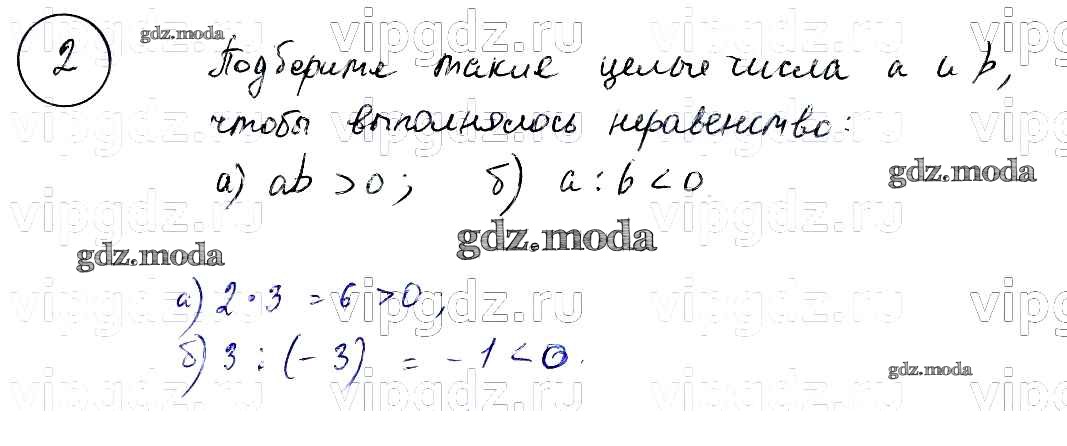 2
gdz.moda
Подберите такие целые числа a и b,
чтобы выполнялось неравенство:
а) ab > 0; б) a : b < 0
gdz.moda
gdz.moda
gdz.moda
а) 2 · 3 = 6 > 0,
б) 3 : (-3) = -1 < 0.
gdz.moda
vipgdz.ru vipgdz.ru vipgdz.ru